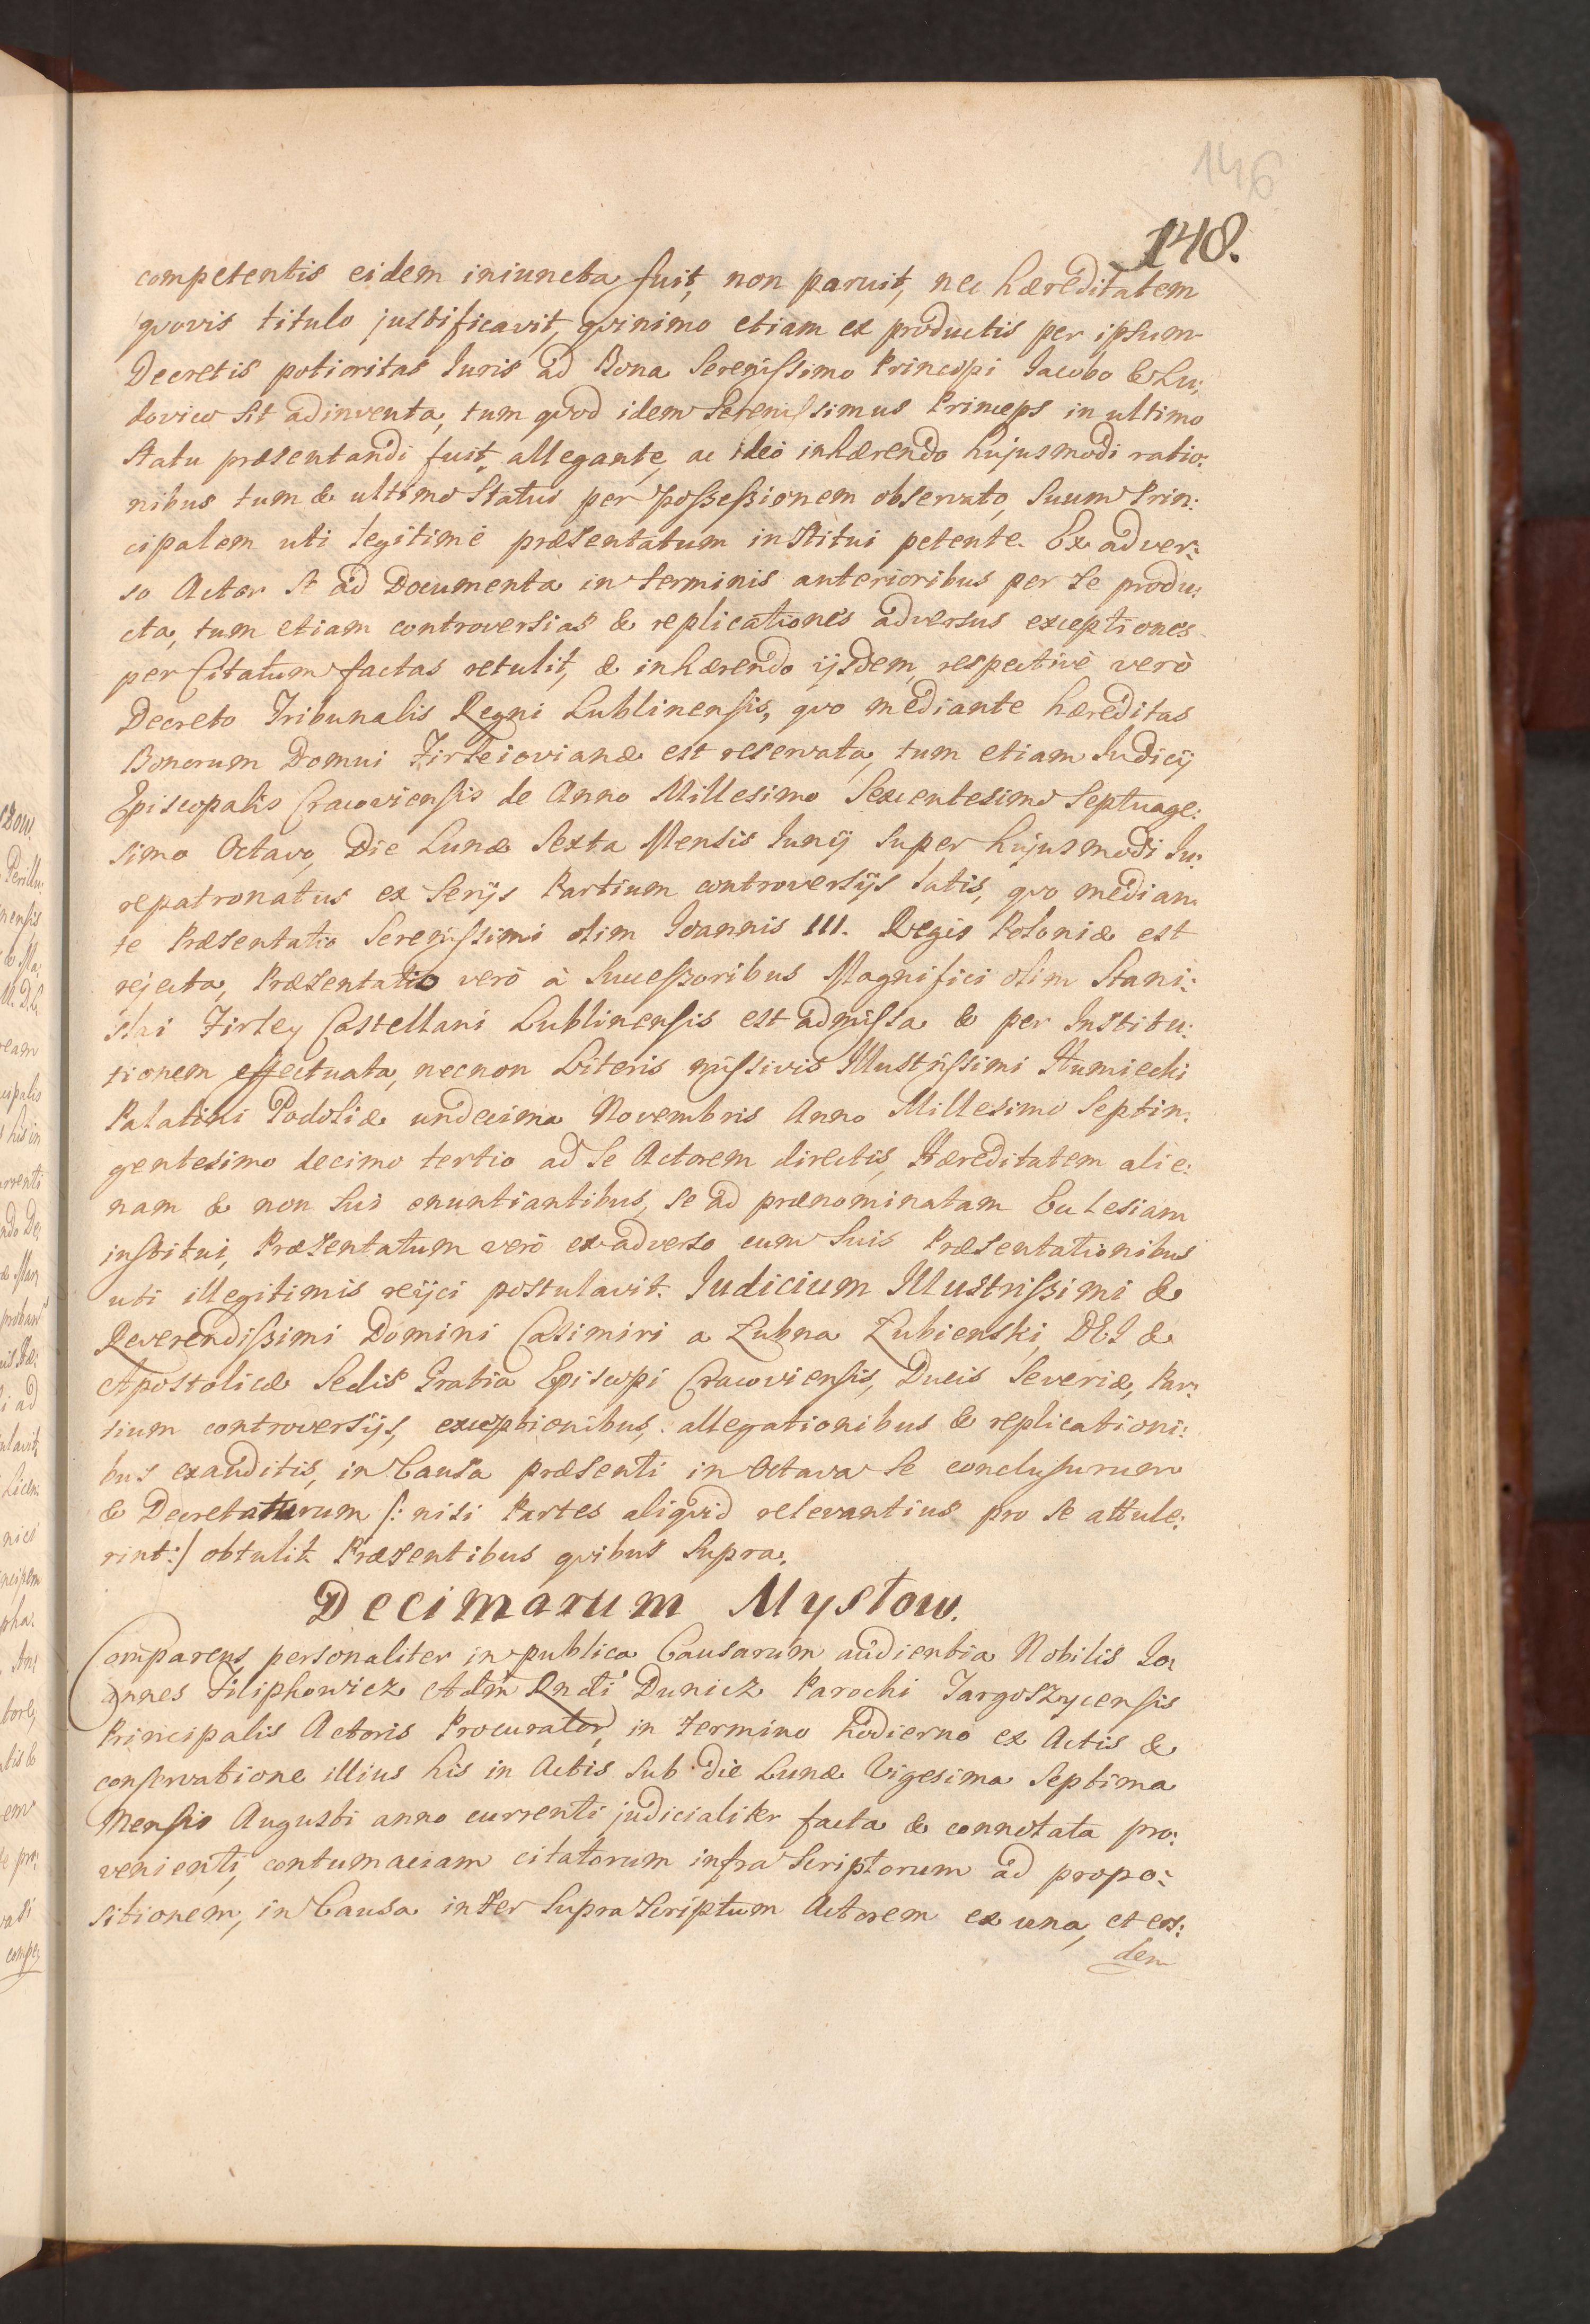 146
148.
competentis eidem iniuncta fuit, non paruit, nec hæreditatem
qvovis titulo justificavit, qvinimo etiam ex productis per ipsum
Decretis potioritas Iuris ad Bona Serenissimo Principi Iacobo & Lu:
dovico sit adinventa, tum qvod idem Serenissimus Princeps in ultimo
statu præsentandi fuit, allegante, ac ideo inhærendo hujusmodi ratio:
nibus tum & ultimo Status per possessionem observato, suum Prin:
cipalem uti legitimè præsentatum institui petente. Ex adver:
so Actor se ad Documenta in terminis anterioribus per se produ:
cta, tum etiam controversias & replicationes adversus exceptiones
per Citatum factas retulit, & inhærendo ijsdem, respectivè verò
Decreto Tribunalis Regni Lublinensis, qvo mediante hæreditas
Bonorum Domui Firleiovianæ est reservata, tum etiam Iudicij
Episcopalis Cracoviensis de Anno Millesimo Sexcentesimo Septuage:
simo Octavo, Die Lunæ Sexta Mensis Iunij super hujusmodi Iu:
repatronatus ex serijs Partium controversijs latis, qvo median:
te Præsentatio Serenissimi olim Ioannis III. Regis Poloniæ est
rejecta, Præsentatio verò à Successoribus Magnifici olim Stani:
slai Firley Castellani Lublinensis est admissa & per Institu:
tionem effectuata, necnon Literis missivis Illustrissimi Humiecki
Palatini Podoliæ undecima Novembris Anno Millesimo Septin:
gentesimo decimo tertio ad se Actorem directis, Hæreditatem alie:
nam & non sui enuntiantibus, se ad prænominatam Eclesiam
institui, Præsentatum verò ex adverso cum suis Præsentationibus
uti illegitimis reijci postulavit. Iudicium Illustrissimi &
Reverendissimi Domini Casimiri a Łubna Łubienski, DEI &
Apostolicæ Sedis Gratia Episcopi Cracoviensis, Ducis Severiæ, Par:
tium controversijs, exceptionibus, allegationibus & replicationi:
bus exauditis, in Causa præsenti in Octava se conclusurum
& Decretaturum /: nisi Partes aliqvid relevantius pro se attule:
rint :/ obtulit. Præsentibus qvibus supra.
Decimarum Mystow.
Comparens personaliter in publica Causarum audientia Nobilis Io:
annes Filiphowicz Adm Rndi Dunicz Parochi Targoszycensis
Principalis Actoris Procurator, in termino hodierno ex Actis &
conservatione illius his in Actis sub die Lunæ Vigesima Septima
Mensis Augusti anno currenti judicialiter facta & connotata pro:
venienti, contumaciam citatorum infrascriptorum ad propo:
sitionem, in Causa inter suprascriptum Actorem ex una, et eos:
dem